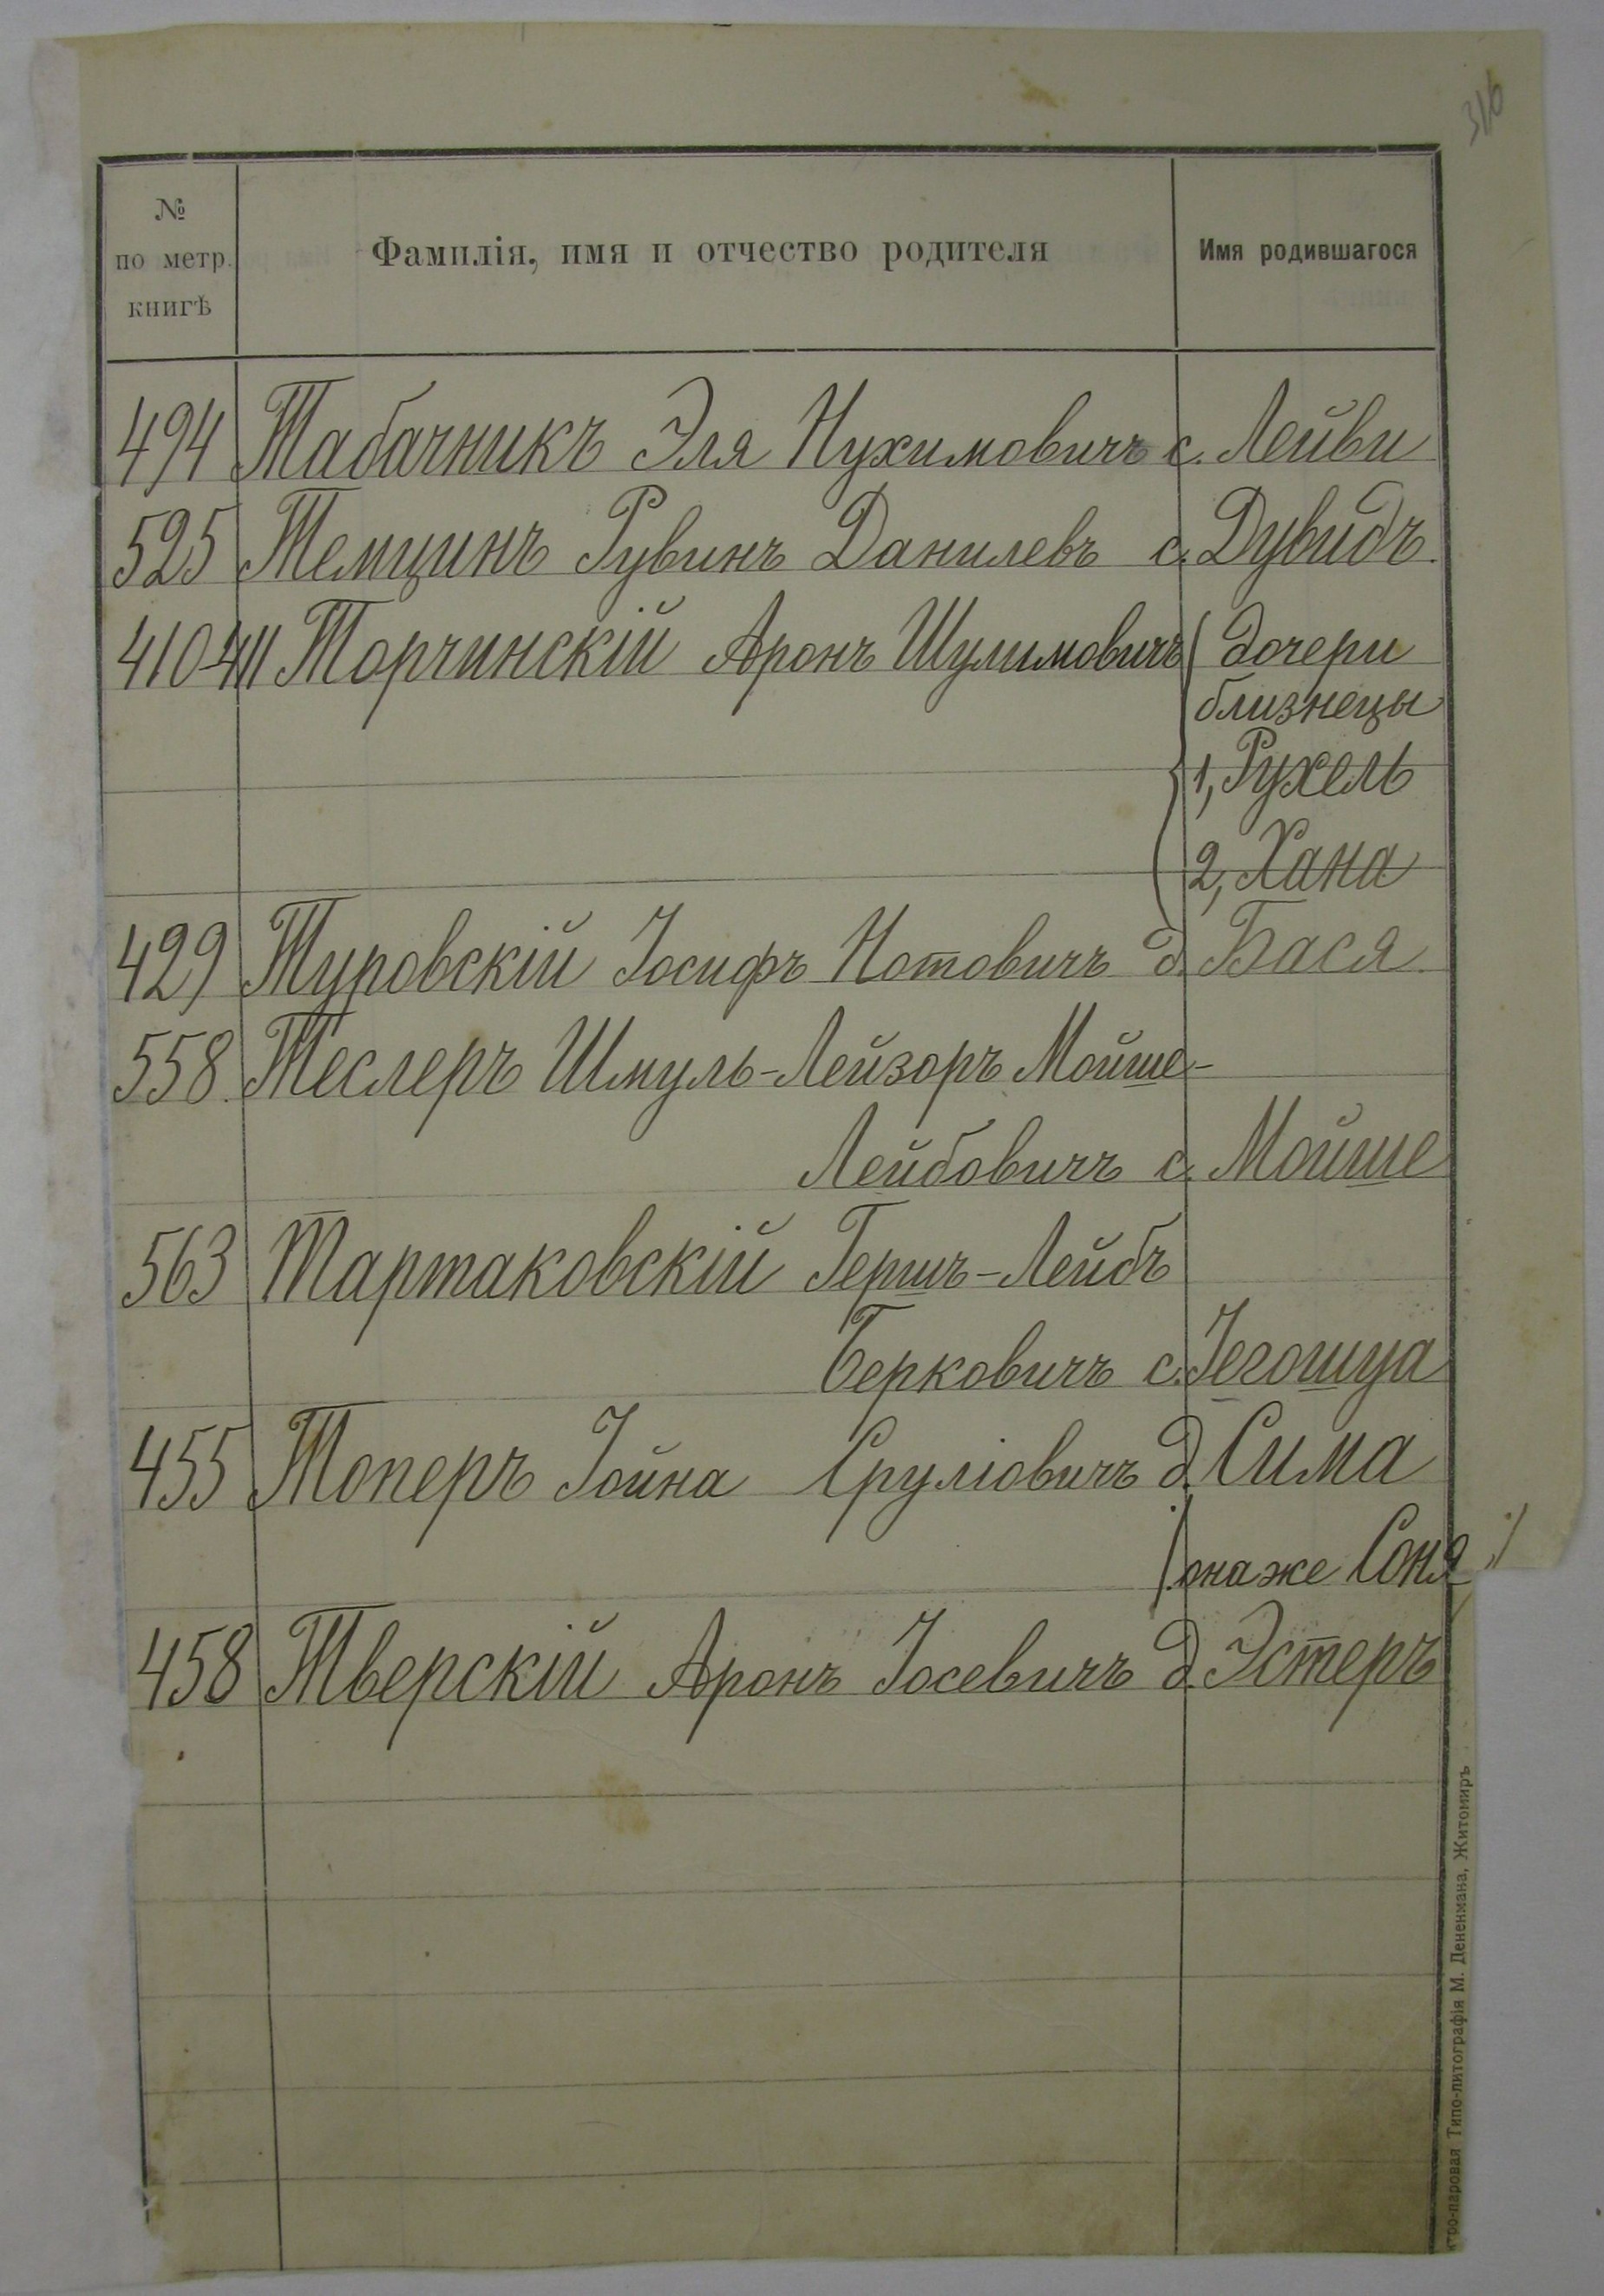 316
№
по метр.
книгѣ
Фамилія, имя и отчество родителя
Имя родившагося
494 Табачникъ Эля Нухимовичъ с. Лейви
525 Темцинъ Рувинъ Данилевъ с. Дувидъ.
410-411 Торчинскій Аронъ Шулимовичъ дочери
близнецы
1, Рухель
2, Хана
429 Туровскій Іосифъ Нотовичъ д. Бася
558. Теслеръ Шмуль-Лейзоръ Мойше-
Лейбовичъ с. Мойше
563 Тартаковскій Гершъ-Лейбъ
Берковичъ с. Іегошуа
455 Топеръ Іойна Сруліовичъ д. Сима
/: она же Соня :/
458 Тверскій Аронъ Іосевичъ д. Эстеръ
тро-паровая Типо-литографія М. Дененмана, Житомиръ